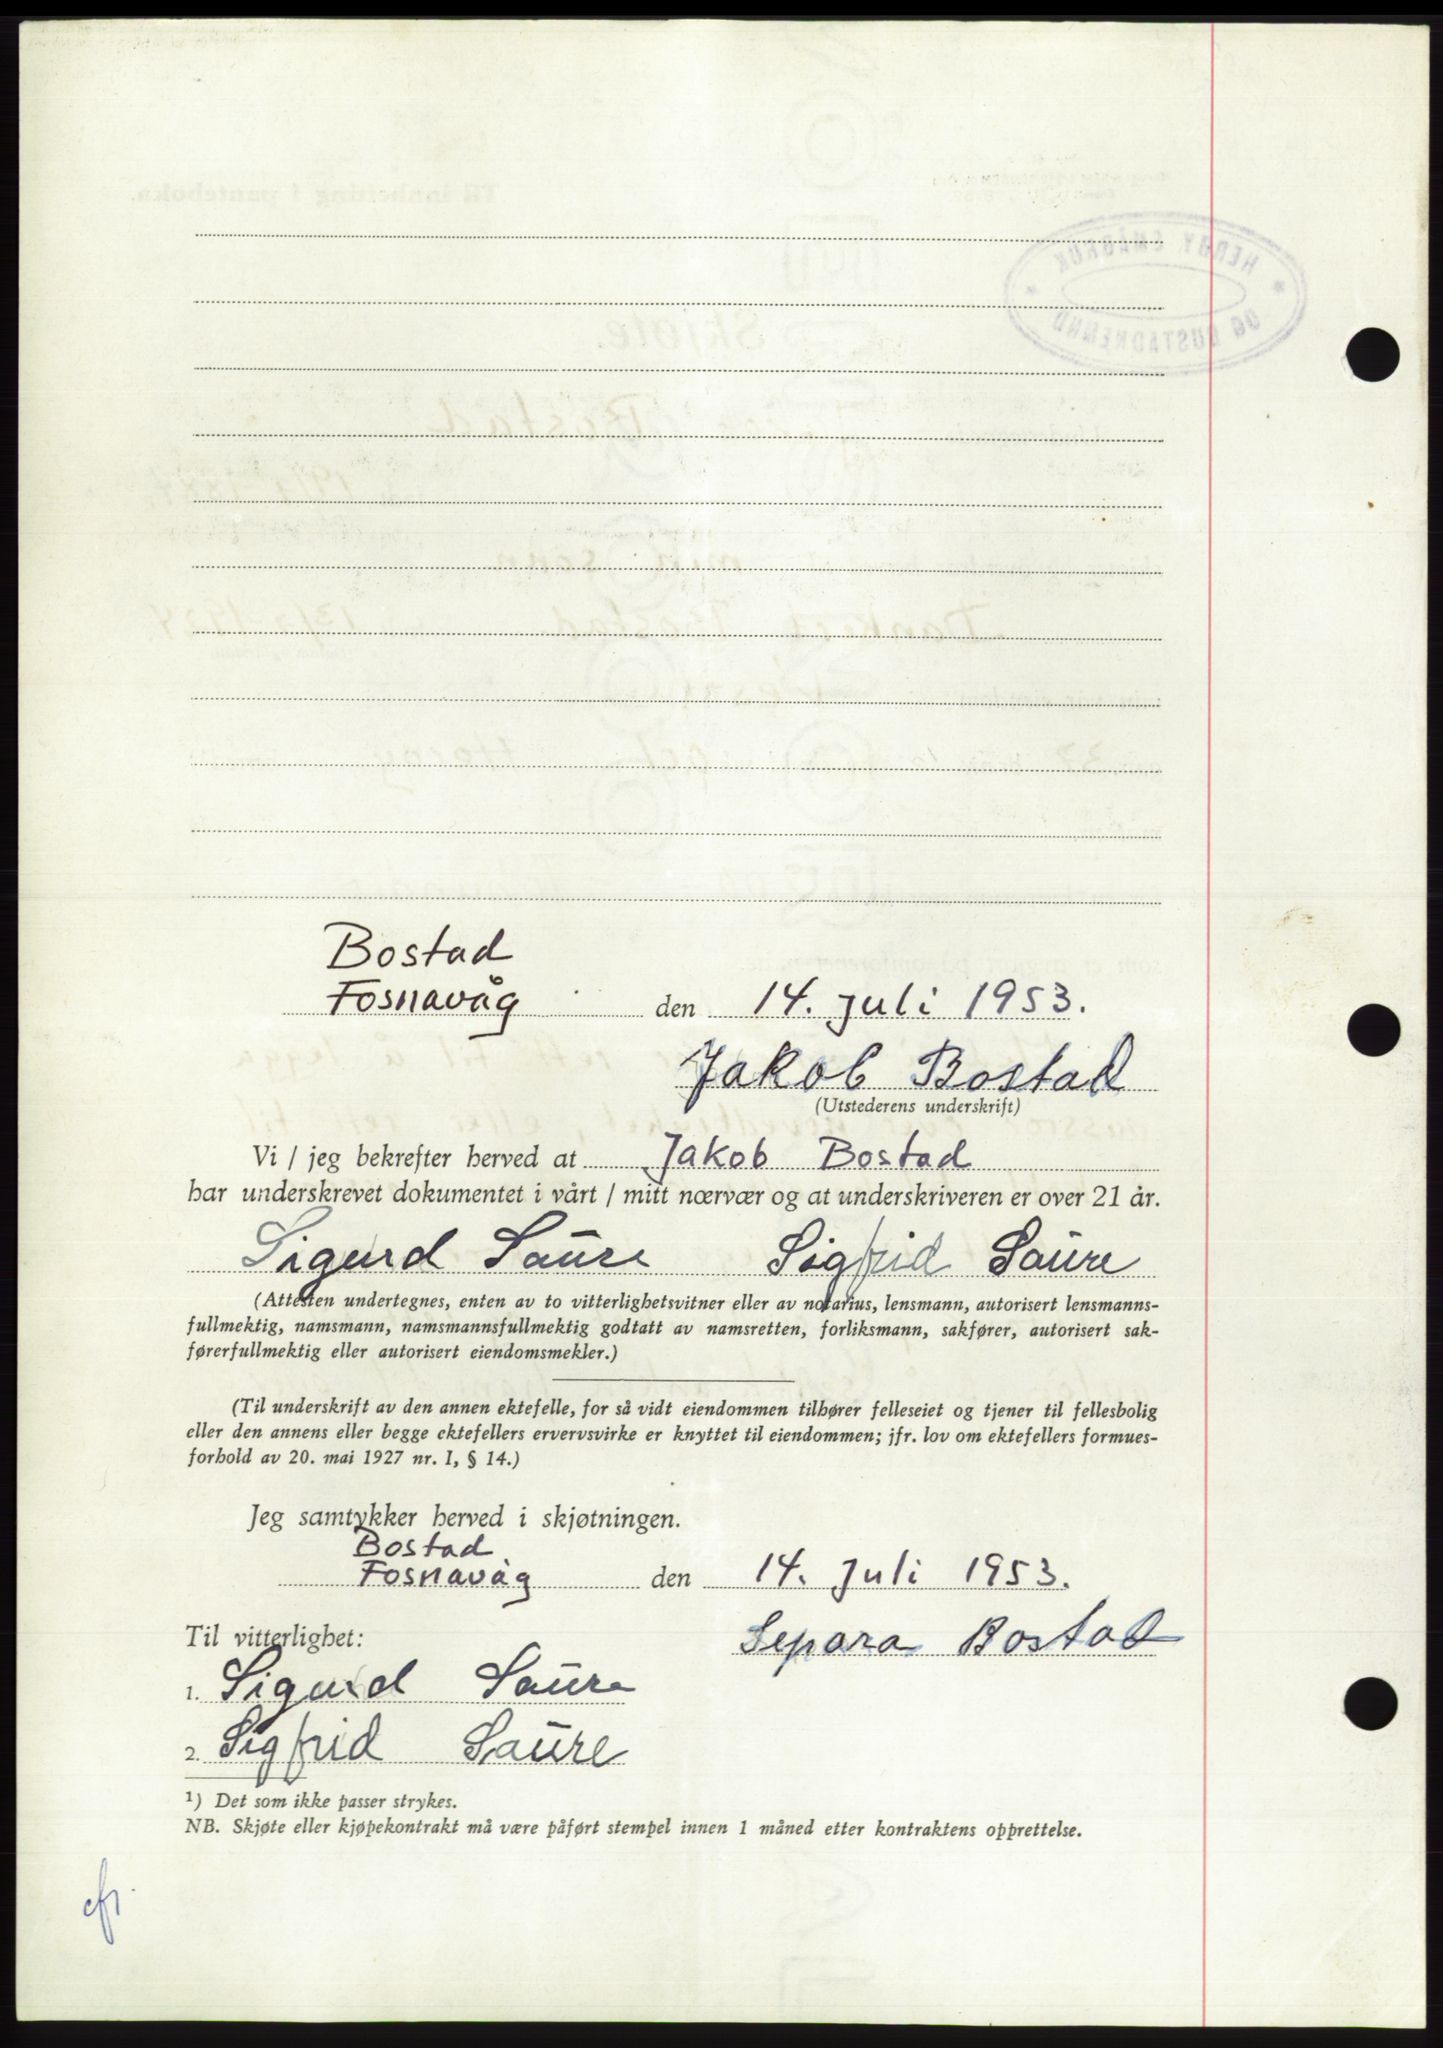 Bostad
Fosnavåg den 14. juli 1953.
Jakob Bostad
(Utstederens underskrift)
Vi / jeg bekrefter herved at Jakob Bostad
har underskrevet dokumentet i vårt / mitt nærvær og at underskriveren er over 21 år.
Sigurd Saure Sigfrid Saure
(Attesten undertegnes, enten av to vitterlighetsvitner eller av notarius, lensmann, autorisert lensmanns-
fullmektig, namsmann, namsmannsfullmektig godtatt av namsretten, forliksmann, sakfører, autorisert sak-
førerfullmektig eller autorisert eiendomsmekler.)
(Til underskrift av den annen ektefelle, for så vidt eiendommen tilhører felleseiet og tjener til fellesbolig
eller den annens eller begge ektefellers ervervsvirke er knyttet til eiendommen; jfr. lov om ektefellers formues-
forhold av 20. mai 1927 nr. 1, § 14.)
Jeg samtykker herved i skjøtningen.
Bostad
Fosnavåg den 14. juli 1953.
Til vitterlighet:
Sepora Bostad
1. Sigurd Saure
2. Sigfrid Saure
¹) Det som ikke passer strykes.
NB. Skjøte eller kjøpekontrakt må være påført stempel innen 1 måned etter kontraktens opprettelse.